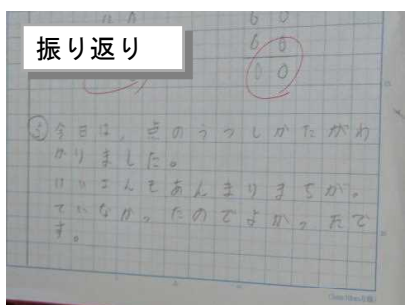 振り返り
6 0
6 6
0 0
ふ今日は、点のうつしかたがわ
かりました。
けいさんであんまりまちが。
ていなかったのでよかったで
す。